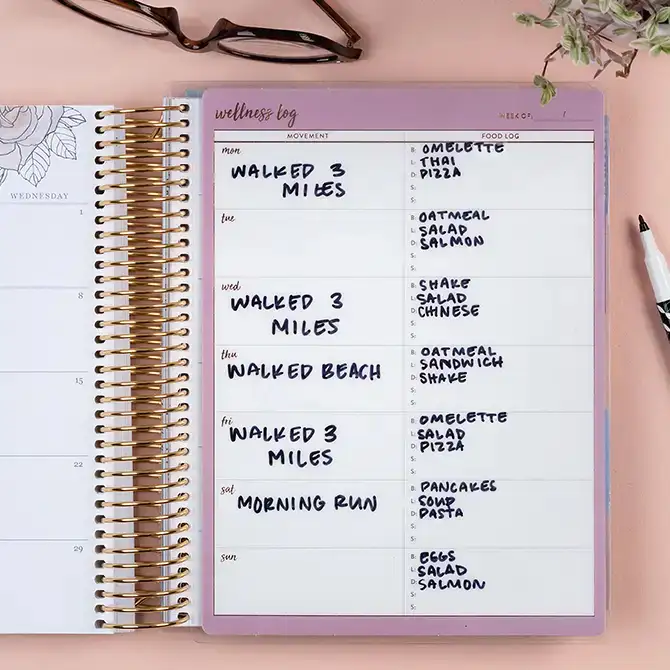 WEDNESDAY
1
8
15
22
29
wellness log
WEEK OF: /
MOVEMENT
FOOD LOG
mon
WALKED 3
MILES
B: OMELETTE
L: THAI
D: PIZZA
S:
S:
tue
B: OATMEAL
L: SALAD
D: SALMON
S:
S:
wed
WALKED 3
MILES
B: SHAKE
L: SALAD
D: CHINESE
S:
S:
thu
WALKED BEACH
B: OATMEAL
L: SANDWICH
D: SHAKE
S:
S:
fri
WALKED 3
MILES
B: OMELETTE
L: SALAD
D: PIZZA
S:
S:
sat
MORNING RUN
B: PANCAKES
L: SOUP
D: PASTA
S:
S:
sun
B: EGGS
L: SALAD
D: SALMON
S:
S: